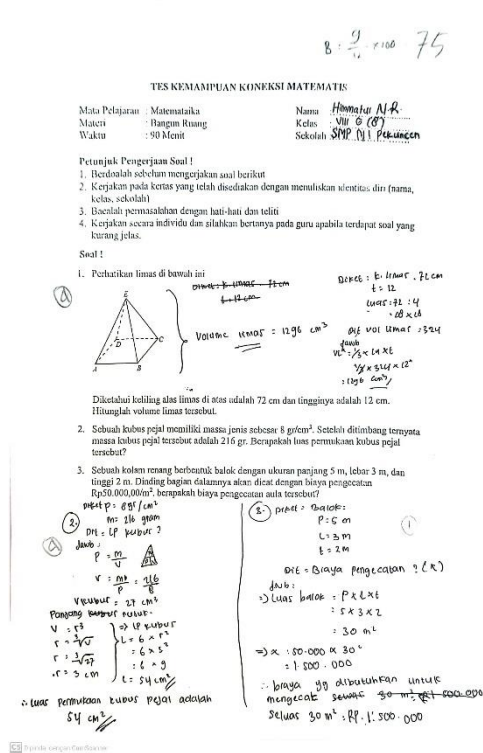 B : 9/ x 100 75
TES KEMAMPUAN KONEKSI MATEMATIS
Mata Pelajaran : Matemataika
Materi : Bangun Ruang
Waktu : 90 Menit
Nama : Himmatul N.R.
Kelas : VIII G (8)
Sekolah : SMP N 1 Pekuncen
Petunjuk Pengerjaan Soal !
1. Berdoalah sebelum mengerjakan soal berikut
2. Kerjakan pada kertas yang telah disediakan dengan menuliskan identitas diri (nama,
kelas, sekolah)
3. Bacalah permasalahan dengan hati-hati dan teliti
4. Kerjakan secara individu dan silahkan bertanya pada guru apabila terdapat soal yang
kurang jelas.
Soal !
1. Perhatikan limas di bawah ini
E
D
C
A
B
Diket : k. limas . 72 cm
t = 12 cm
Volume limas = 1296 cm³
Diket : k. limas . 72 cm
t = 12
luas : 72 : 4
= 18 x 18
Dit vol limas : 324
Jawab
VL = 1/3 x La x t
1/3 x 324 x 12
: 1296 cm³
Diketahui keliling alas limas di atas adalah 72 cm dan tingginya adalah 12 cm.
Hitunglah volume limas tersebut.
2. Sebuah kubus pejal memiliki massa jenis sebesar 8 gr/cm³. Setelah ditimbang ternyata
massa kubus pejal tersebut adalah 216 gr. Berapakah luas permukaan kubus pejal
tersebut?
3. Sebuah kolam renang berbentuk balok dengan ukuran panjang 5 m, lebar 3 m, dan
tinggi 2 m. Dinding bagian dalamnya akan dicat dengan biaya pengecatan
Rp50.000,00/m², berapakah biaya pengecatan aula tersebut?
2. Diket p = 8 gr/cm³
m = 216 gram
Dit : LP kubus ?
Jawab :
P = m/V
V = m/P = 216/8
V kubus = 27 cm³
Panjang rusuk kubus.
V = r³
r = ³√V
r = ³√27
r = 3 cm
=> LP kubus
L = 6 x r²
: 6 x 3²
: 6 x 9
L = 54 cm²
∴ Luas permukaan kubus pejal adalah
54 cm²
3. Diket = Balok:
P = 5 m
L = 3 m
t = 2 m
Dit = Biaya pengecatan ? (x)
Jwb :
=> Luas balok = P x L x t
: 5 x 3 x 2
: 30 m²
=> x : 50.000 x 30
: 1.500.000
∴ biaya yg dibutuhkan untuk
mengecat
seluas 30 m² : Rp. 1.500.000
CS Dipindai dengan CamScanner